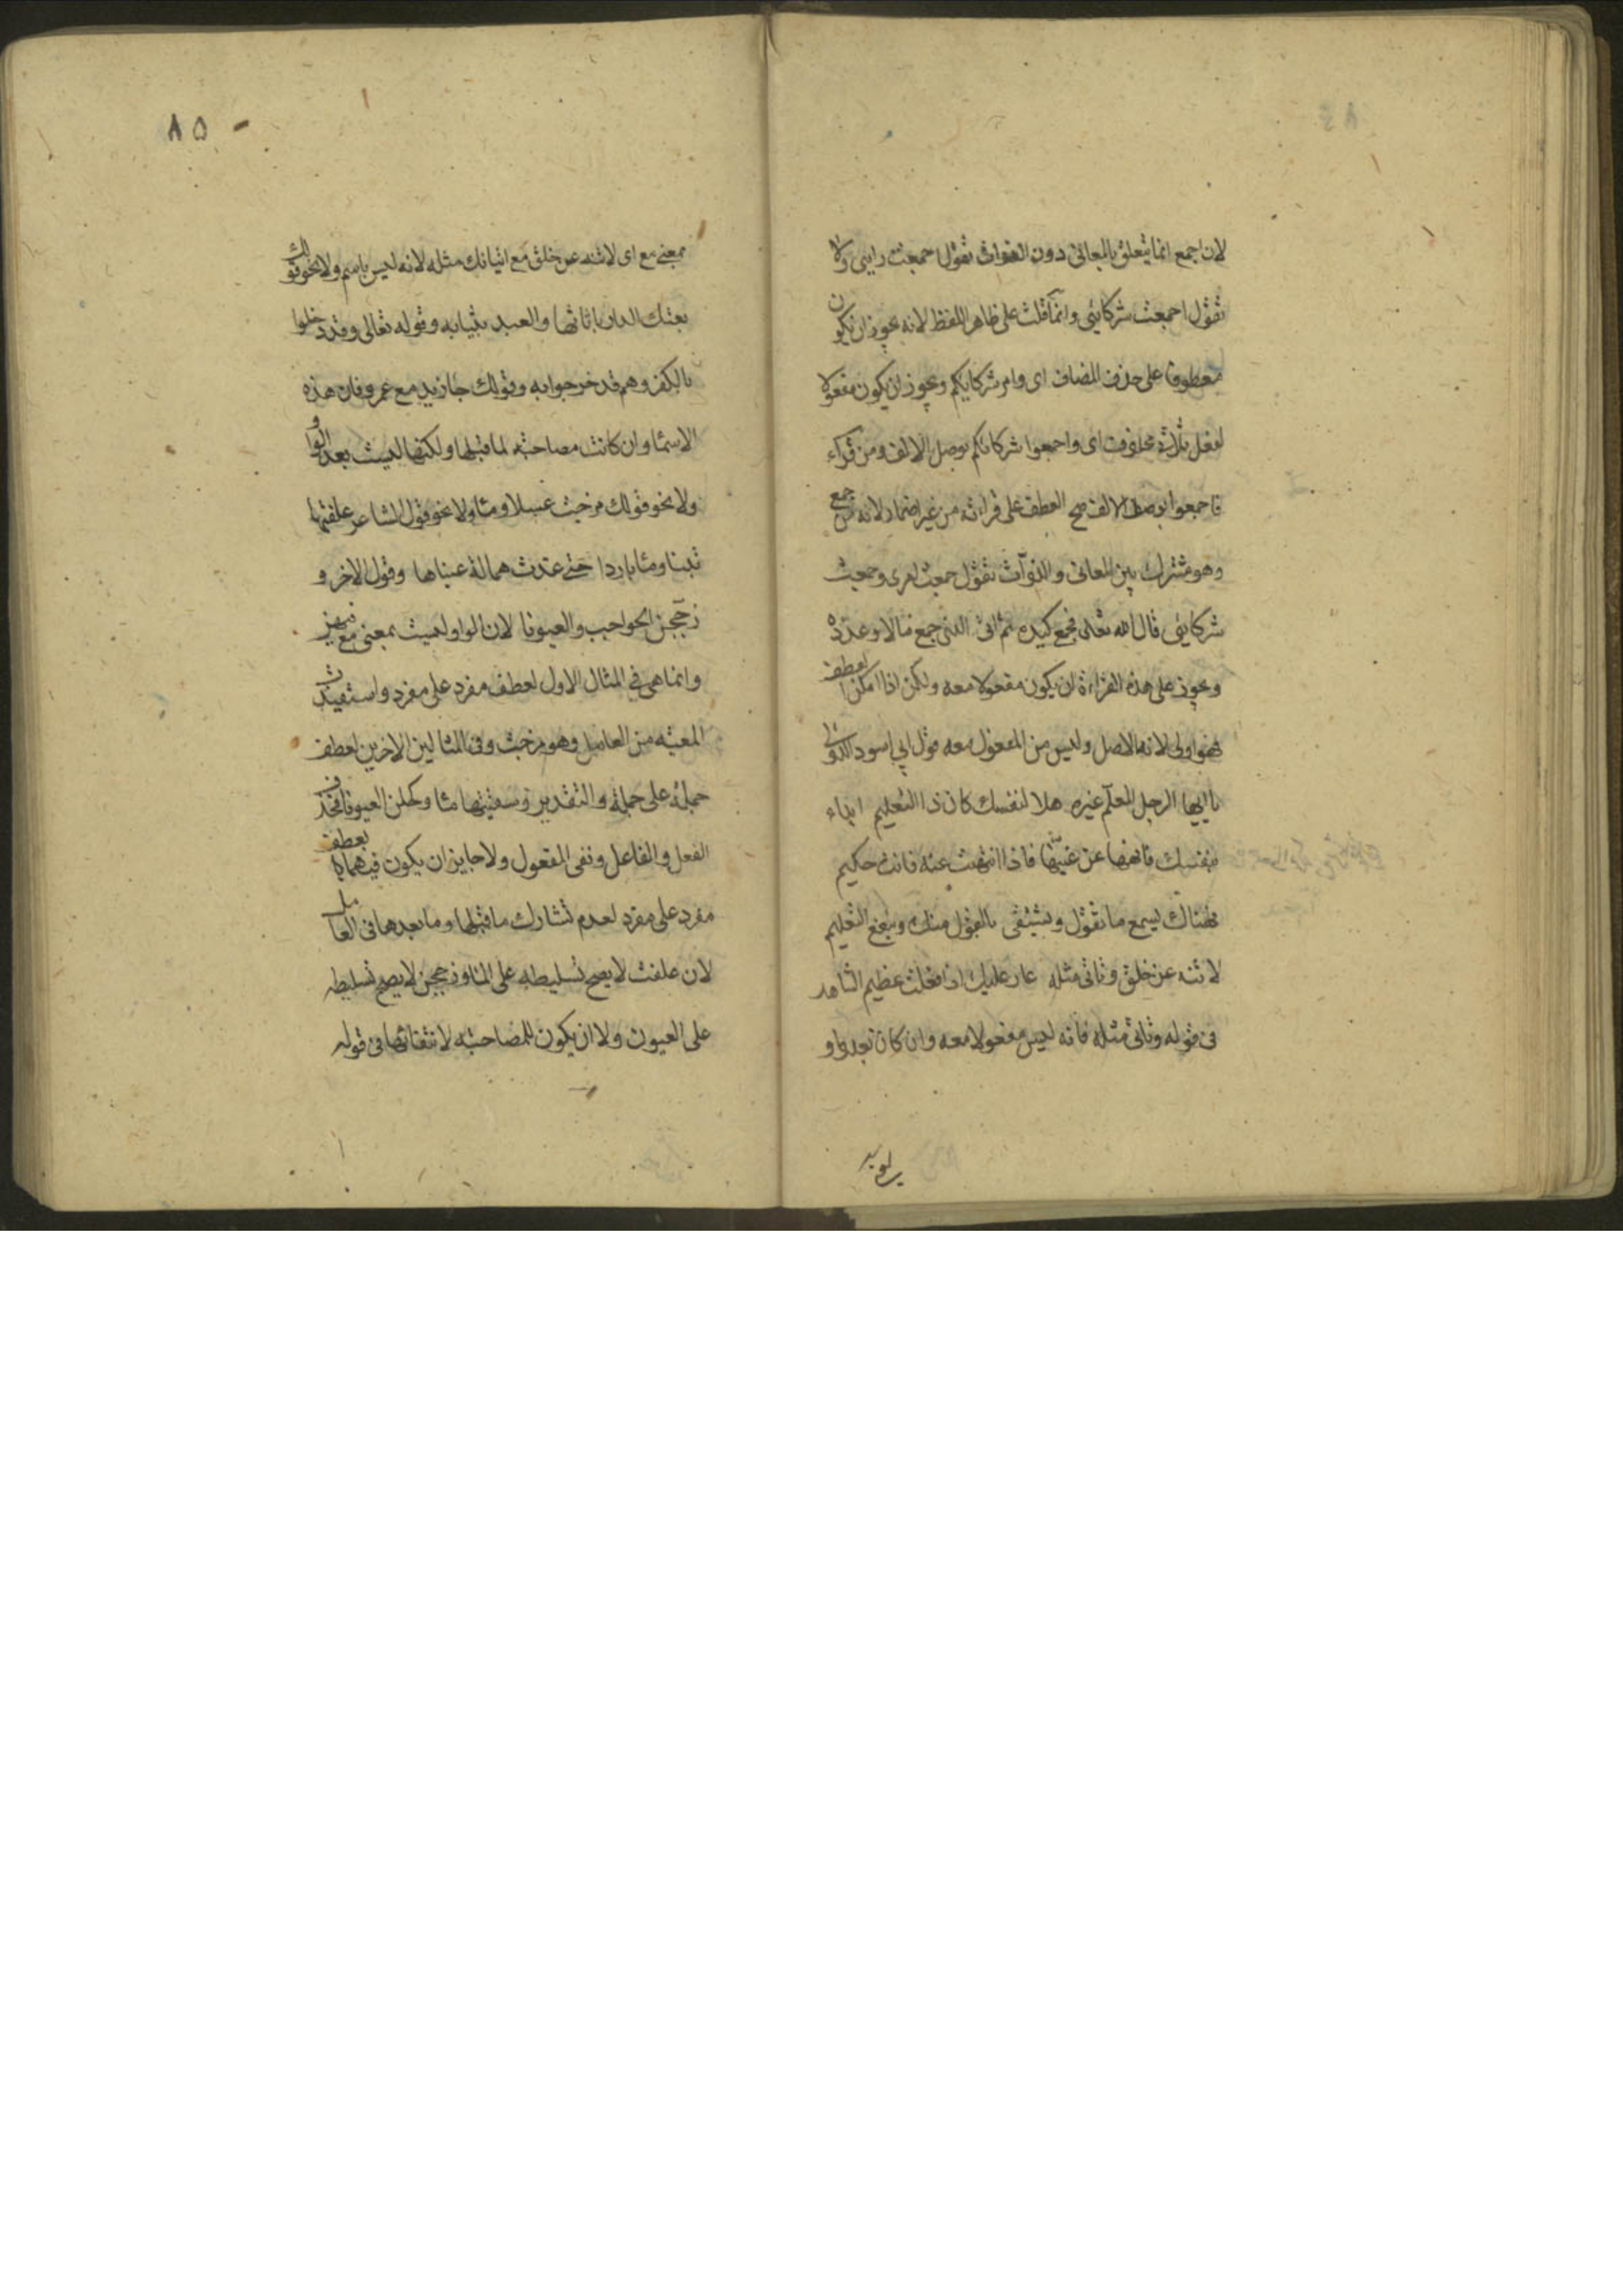 لان اجمع انما يتعلق بالمعانى دون الذوات تقول اجمعت رايى ولا
تقول اجمعت شركائى وانما قلت على ظاهر اللفظ لانه يجوز ان يكون
معطوفا على حذف المضاف اى وامر شركايكم ويجوز ان يكون مفعولا
لفعل ثلاثى محذوف اى واجمعوا شركائكم بوصل الالف ومن قراء
فاجمعوا بوصل الالف صح العطف على قرائته من غير اضمار لانه من جمع
وهو مشترك بين المعانى والذوات تقول جمعت امرى وجمعت
شركايى قال الله تعالى فجمع كيده ثم اتى الذى جمع مالا وعدده
ويجوز على هذه القراءة ان يكون مفعولا معه ولكن اذا امكن العطف
فهو اولى لانه الاصل وليس من المفعول معه قول ابى اسود الدؤلى
يا ايها الرجل المعلم غيره هلا لنفسك كان ذا التعليم ابداء
بنفسك فانهها عن غيها فاذا انتهت عنه فانت حكيم
فهناك يسمع ما تقول ويشتفى بالقول منك وينفع التعليم
لا تنه عن خلق وتاتى مثله عار عليك اذا فعلت عظيم الشاهد
فى قوله وتاتى مثله فانه ليس مفعولا معه وان كان بعد واو
٨٥
بمعنى مع اى لا تنه عن خلق مع اتيانك مثله لانه ليس باسم ولا نحو قولك
بعتك الدار باثاثها والعبد بثيابه وقوله تعالى وقد دخلوا
بالكفر وهم قد خرجوا به وقولك جا زيد مع عمرو فان هذه
الاسما وان كانت مصاحبة لما قبلها ولكنها ليست بعد الواو
ولا نحو قولك مزجت عسلا وما ولا نحو قول الشاعر علفتها
تبنا وما باردا حتى غدت همالة عيناها وقول الاخر و
زججن الحواجب والعيونا لان الواو ليست بمعنى مع فيهن
وانما هى فى المثال الاول لعطف مفرد على مفرد واستفيدت
المعية من العامل وهو مزجت وفى المثالين الاخرين لعطف
جملة على جملة والتقدير وسقيتها ما وكحلن العيونا فحذف
الفعل والفاعل وبقى المفعول ولا جايز ان يكون فيهما لعطف
مفرد على مفرد لعدم تشارك ما قبلها وما بعدها فى العامل
لان علفت لا يصح تسليطه على الما وزججن لا يصح تسليطه
على العيون ولا ان يكون للمصاحبة لانتفائها فى قوله